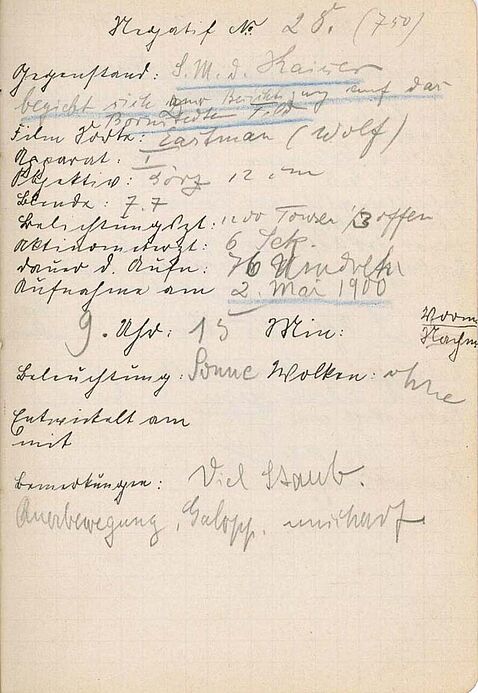 Negatif No 28. (750)
Gegenstand: S. M. d. Kaiser
begiebt sich zur Besichtigung auf das
Bornstedter Feld
Film Sorte: Eastman (Wolf)
Apparat: I
Objektiv: Görz 12 cm
Blende: 7.7
Belichtungszt: 1/3 offen
Aktinometerzt: 6 Sek.
Dauer d. Aufn: 76
Aufnahme am 2. Mai 1900
9. Uhr: 15 Min: Vorm
Nachm
Beleuchtung: Sonne Wolken: ohne
Entwickelt am
mit
Bemerkungen: Viel Staub.
Querbewegung, Galopp. unscharf